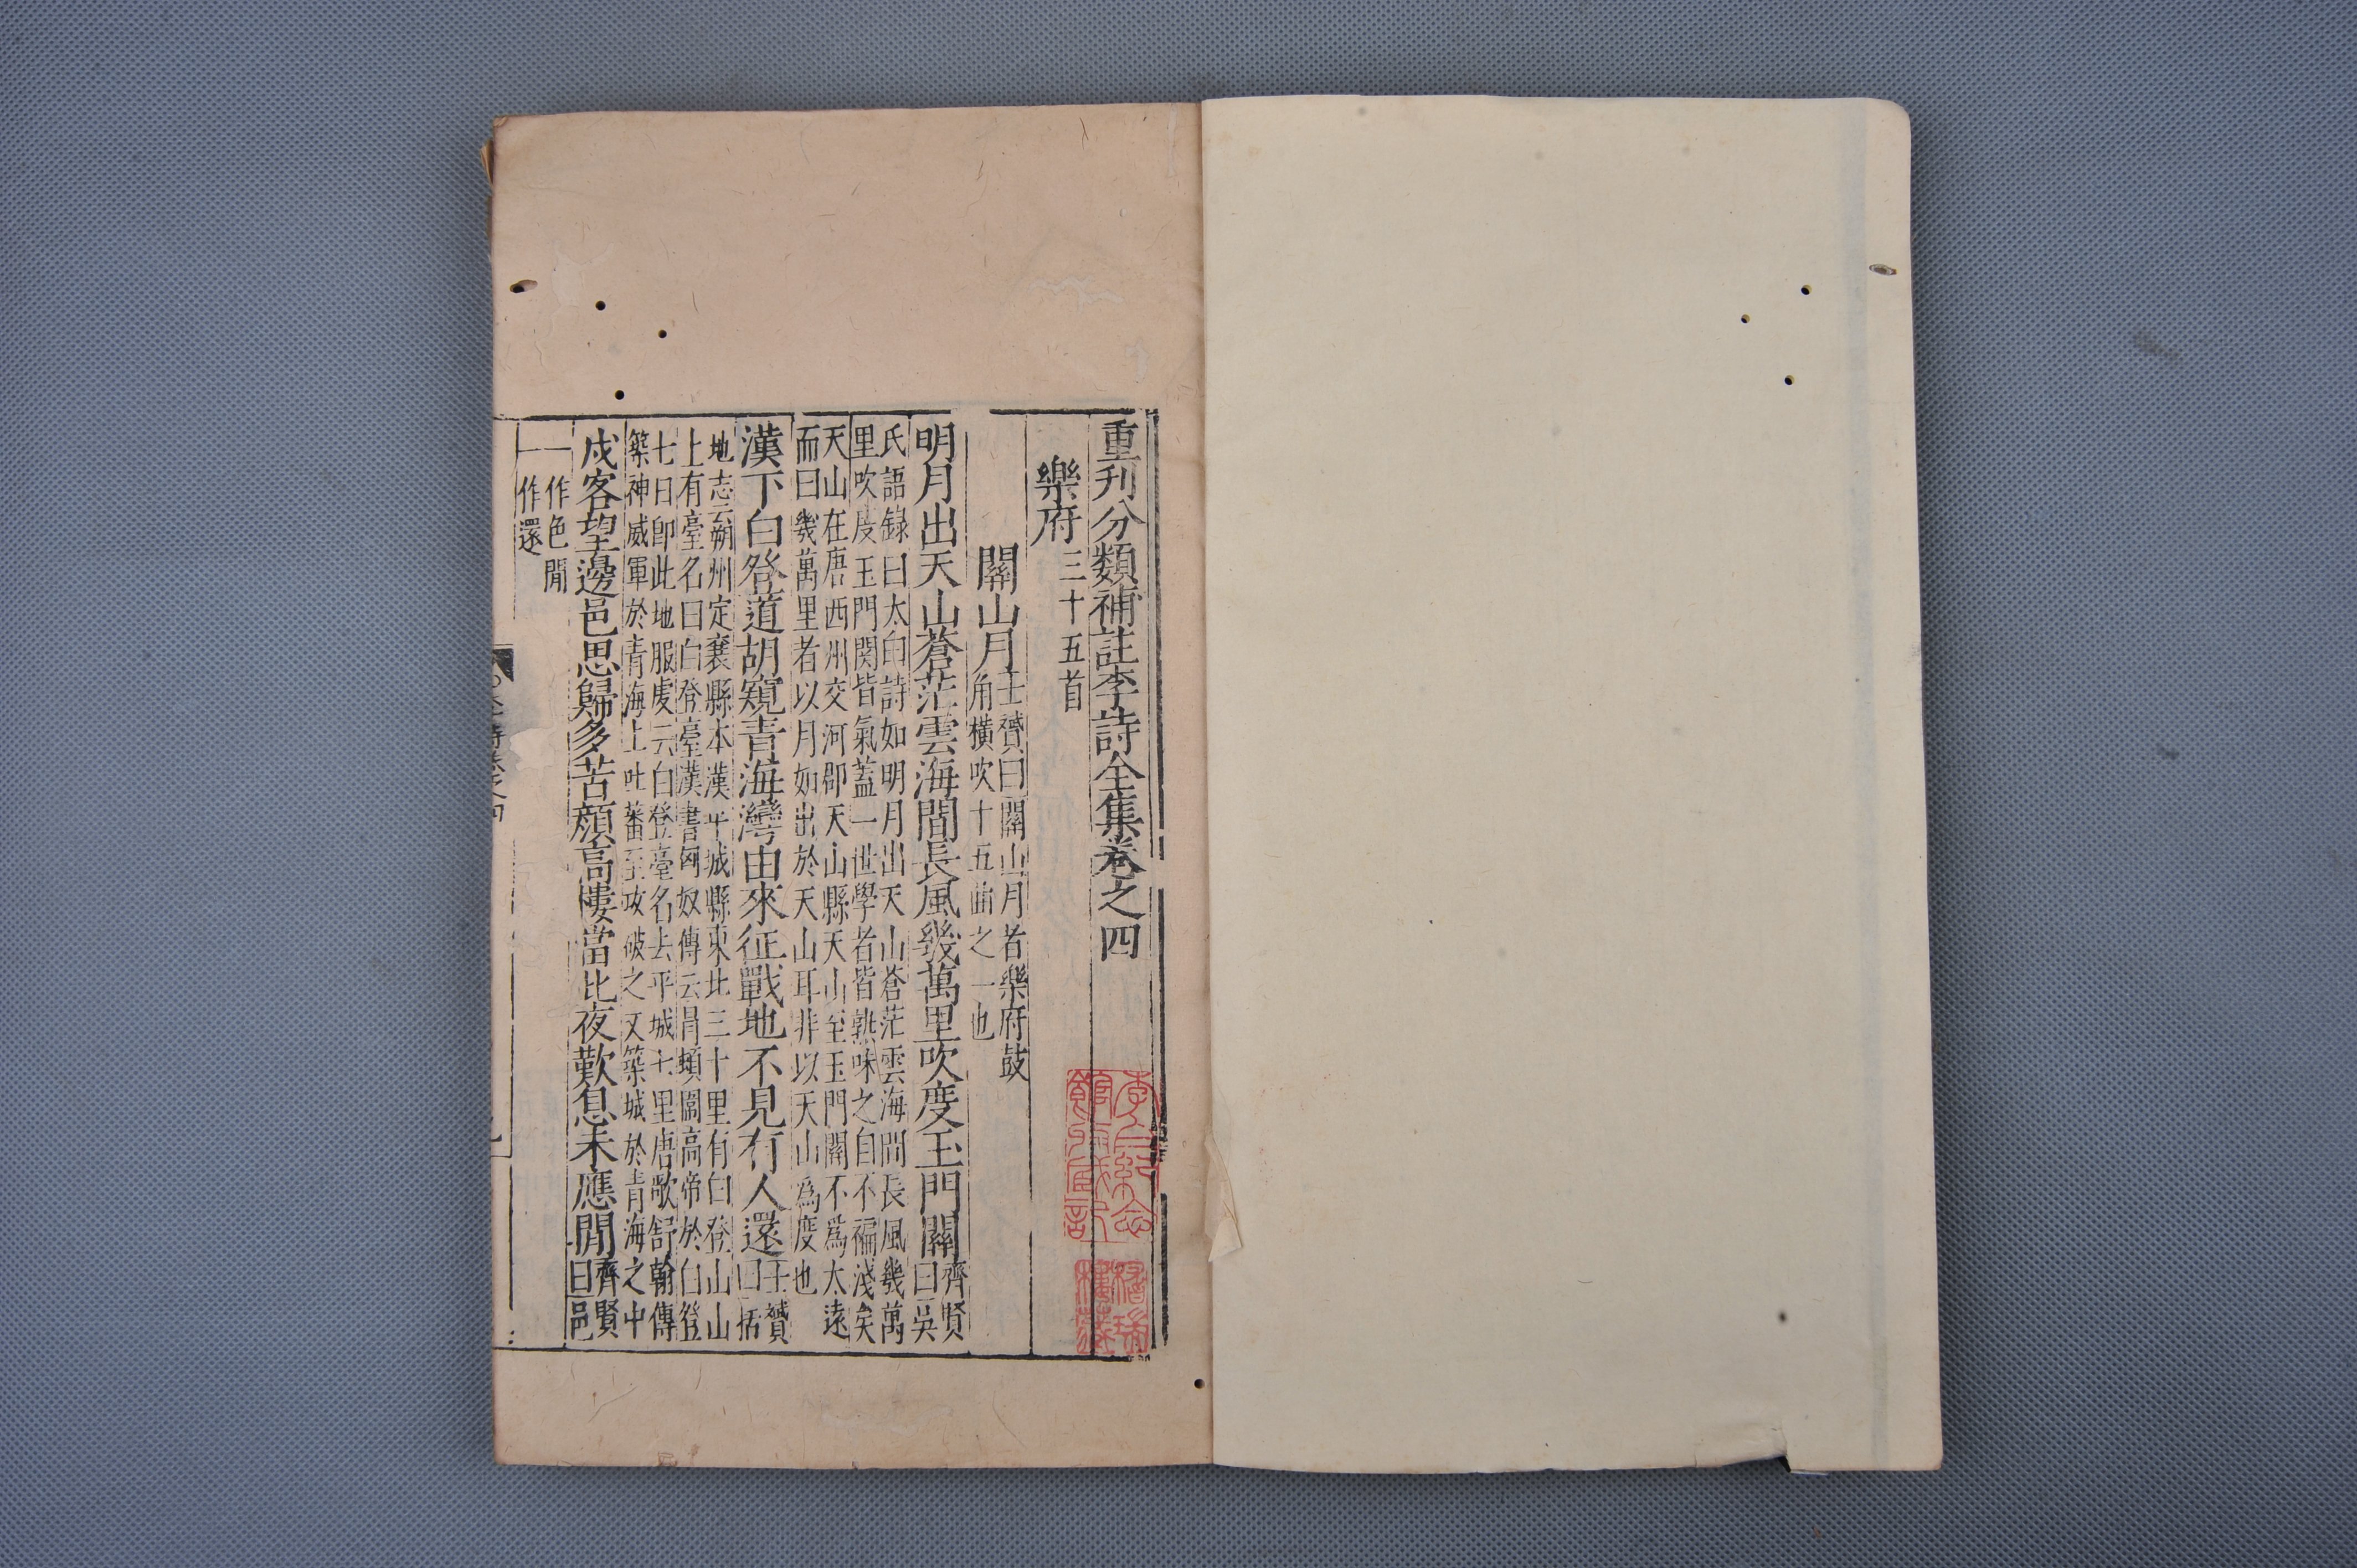 重刊分類補註李詩全集卷之四
樂府三十五首
關山月士贇曰關山月者樂府鼓
角橫吹十五曲之一也
明月出天山蒼茫雲海間長風幾萬里吹度玉門關齊賢
曰吳
氏語錄曰太白詩如明月出天山蒼茫雲海間長風幾萬
里吹度玉門関皆氣蓋一世學者皆熟味之自不褊淺矣
天山在唐西州交河郡天山縣天山至玉門關不爲太遠
而曰幾萬里者以月如出於天山耳非以天山爲度也
漢下白登道胡窺青海灣由來征戰地不見有人還士贇
曰括
地志云朔州定襄縣本漢平城縣東北三十里有白登山山
上有臺名曰白登臺漢書匈奴傳云冒頓圍高帝於白登
七日卽此地服虔云白登臺名去平城七里唐歌舒翰傳
築神威軍於青海上吐蕃至攻破之又築城於青海之中
戍客望邊邑思歸多苦顔高樓當此夜歎息未應閒齊賢
曰邑
一作色閒
一作還
李一氓紀念
館拜臧記